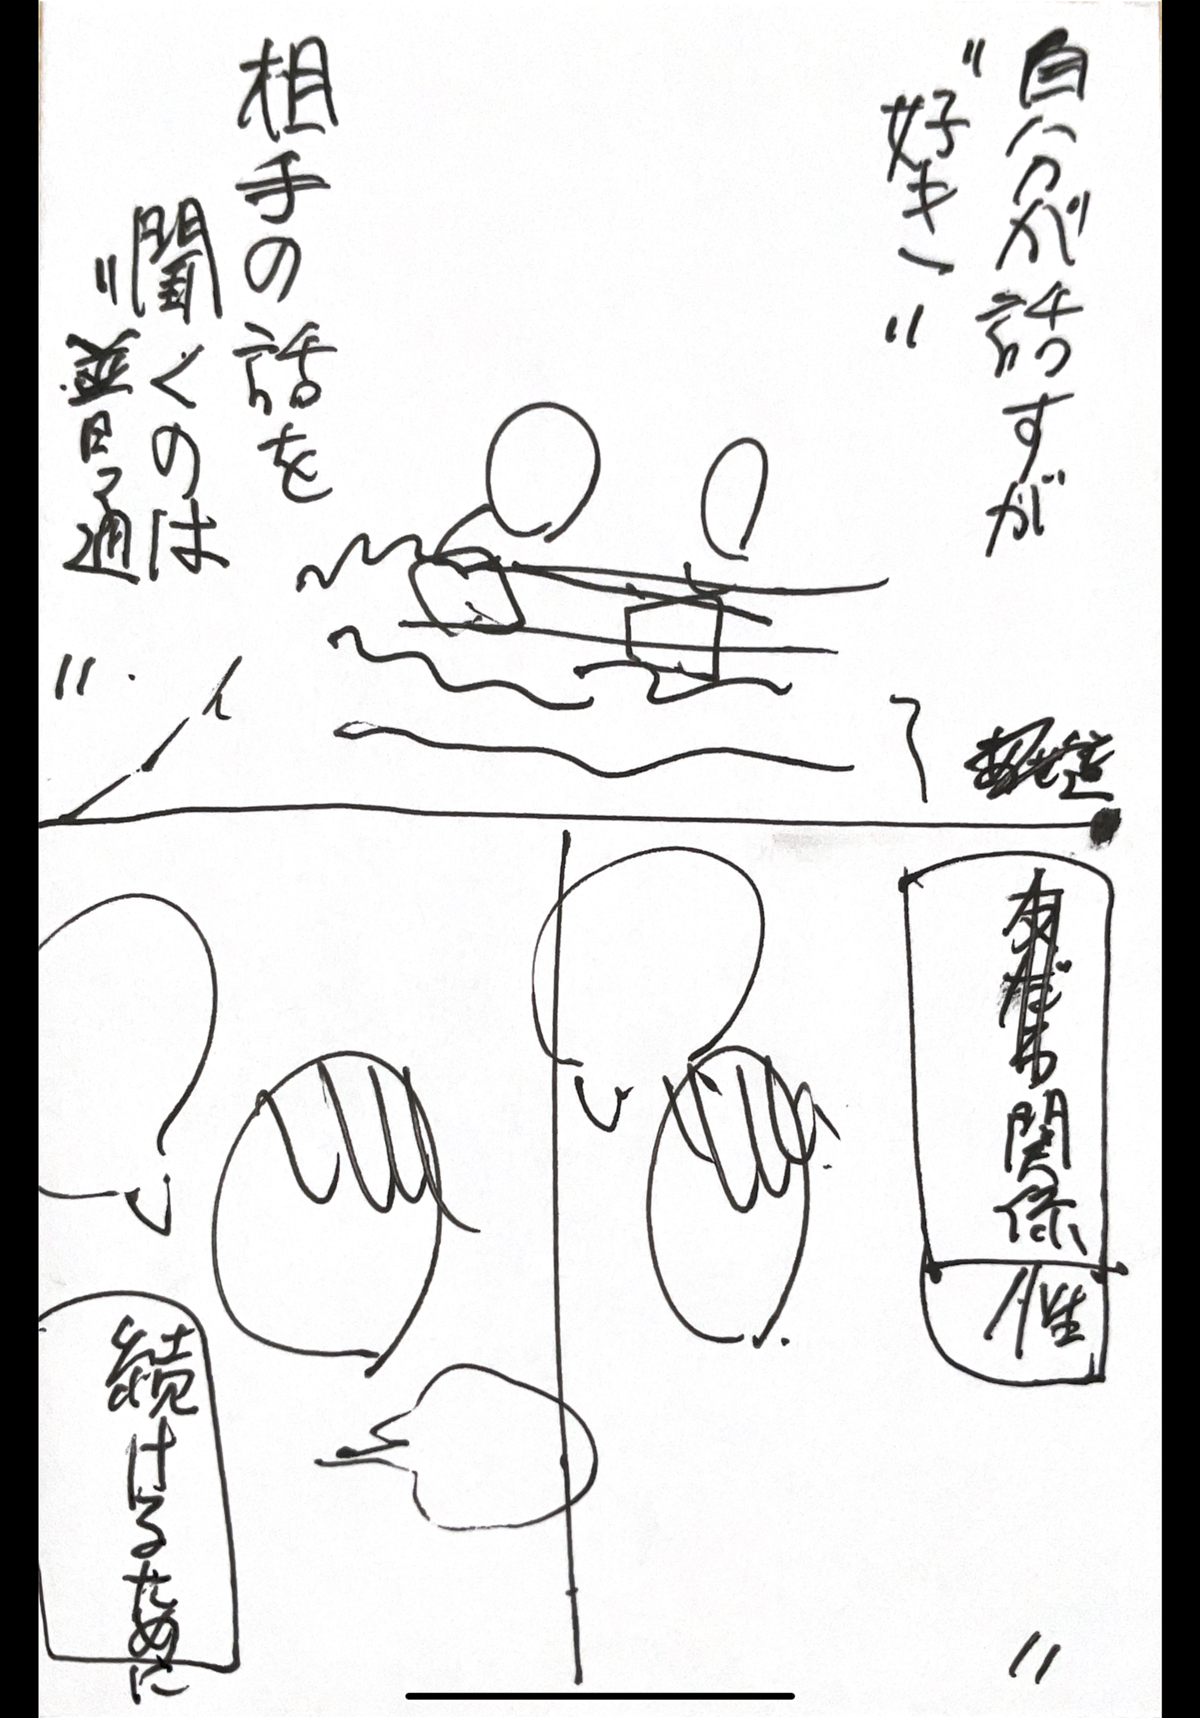 自分が話すが
"好き"
相手の話を
聞くのは
"普通"
友だち関係
続けるために